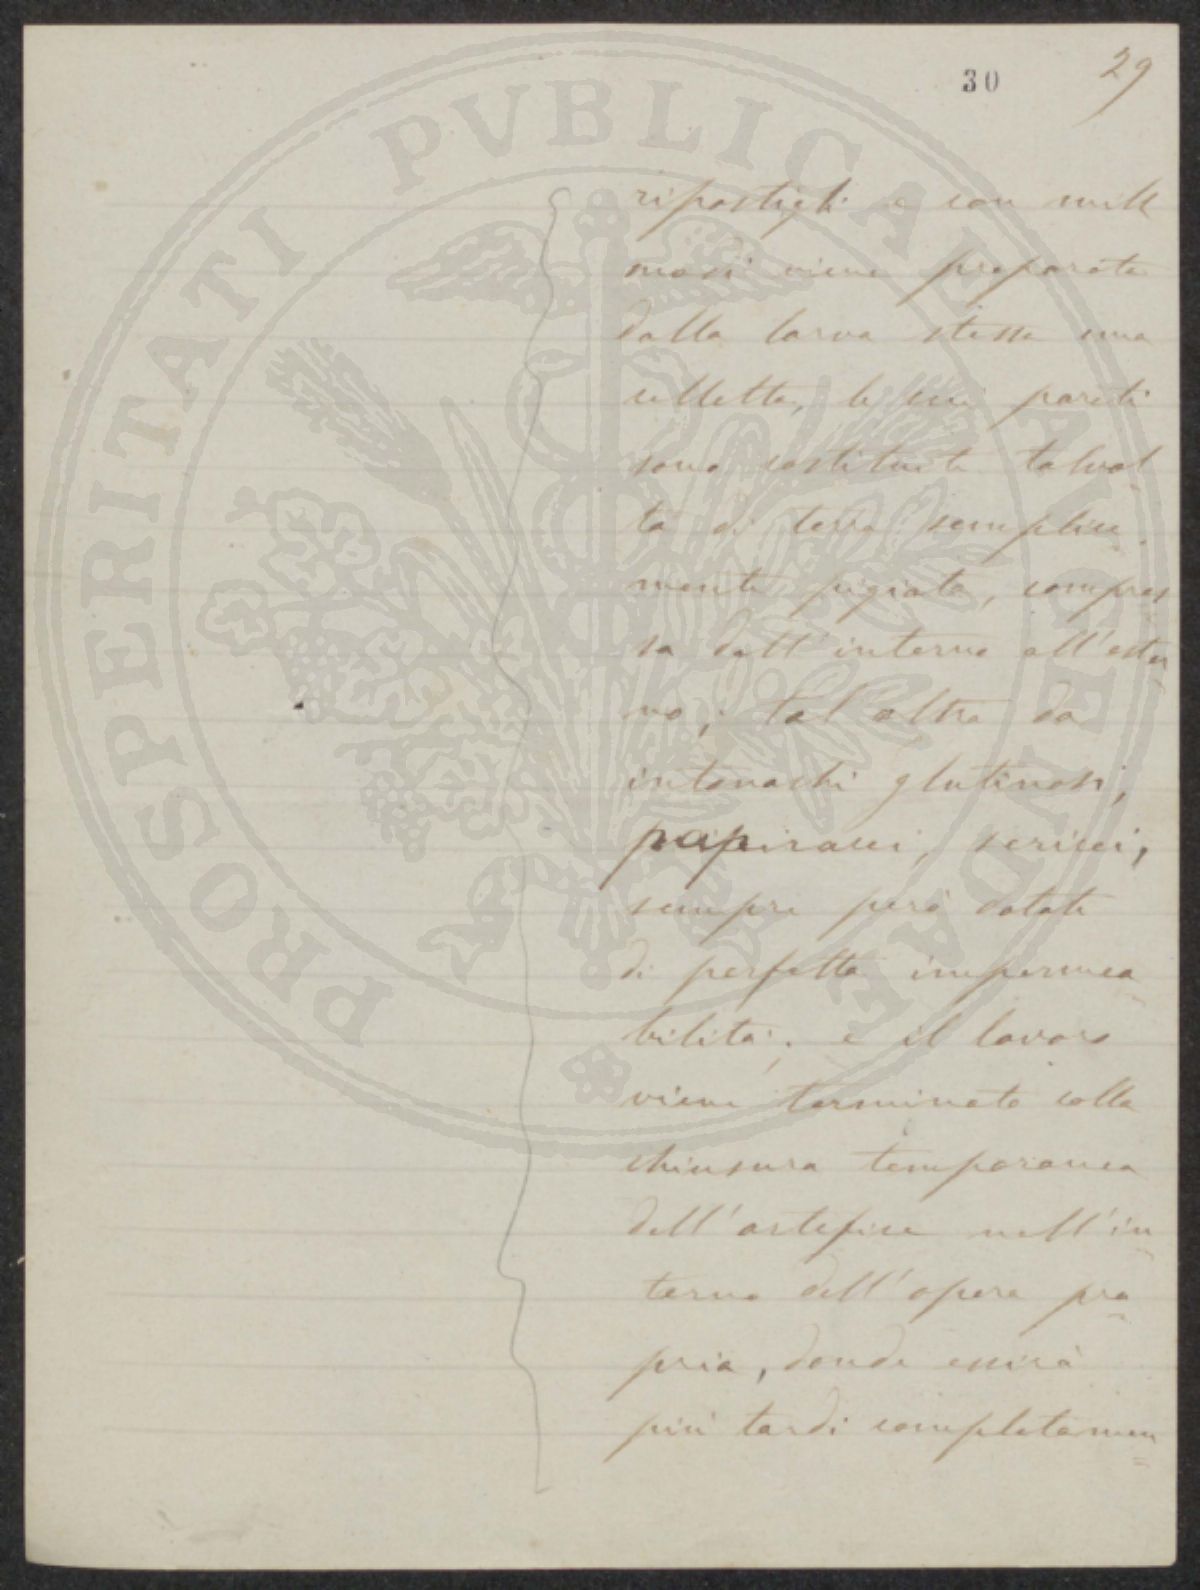 30
29
ripostigli e con mille
modi viene preparata
dalla larva stessa una
celletta, le cui pareti
sono costituite talvol
ta di terra semplice
mente pigiata, compres
sa dall'interno all'ester
no; tal'altra da
intonachi glutinosi,
papiracei, sericei,
sempre però dotate
di perfetta impermea
bilità; e il lavoro
viene terminato colla
chiusura temporanea
dell'artefice nell'in
terno dell'opera pro
pria, donde escirà
più tardi completamen
PROSPERITATI PVBLICAE AVGENDAE